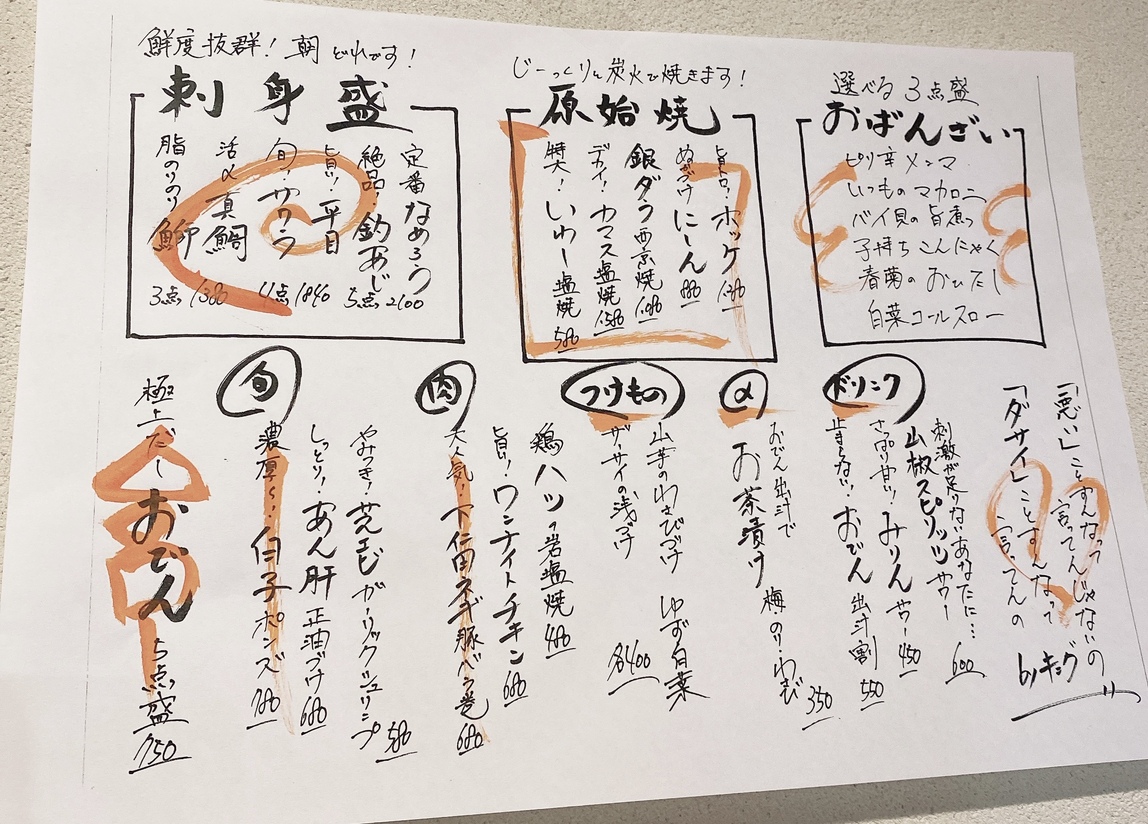 鮮度抜群！朝どれです！
刺身盛
定番なめろう
絶品！釣あじ
旨い！平目
旬！サワラ
活〆真鯛
脂のりのり鰤
3点1380 4点1840 5点2100
じーっくりと炭火で焼きます！
原始焼
旨トロ！ホッケ
ぬかづけにしん
銀ダラ西京焼
デカイ！カマス塩焼
特大！いわし塩焼 580
選べる3点盛
おばんざい
ピリ辛メンマ
いつものマカロニ
バイ貝の旨煮っ
子持ちこんにゃく
春菊のおひたし
白菜コールスロー
「悪い」ことすんなって
言ってんじゃないの
「ダサイ」ことすんなって
言ってんの
byキング
ドリンク
刺激が足りないあなたに…
山椒スピリッツサワー 600
さっぱり甘い！みりんサワー 450
止まらない！おでん出汁割 550
〆
おでん出汁で
お茶漬け 梅・のり・わさび 350
つけもの
山芋のわさびづけ ゆず白菜
ザーサイの浅づけ 各400
肉
鶏ハツの岩塩焼 480
旨い！ワンナイトチキン 680
大人気！下仁田ネギ豚バラ巻 680
旬
やみつき！芝エビガーリックシュリンプ 580
しっとり！あん肝正油づけ 680
濃厚〜！白子ポンズ 780
極上だし おでん 5点盛 750